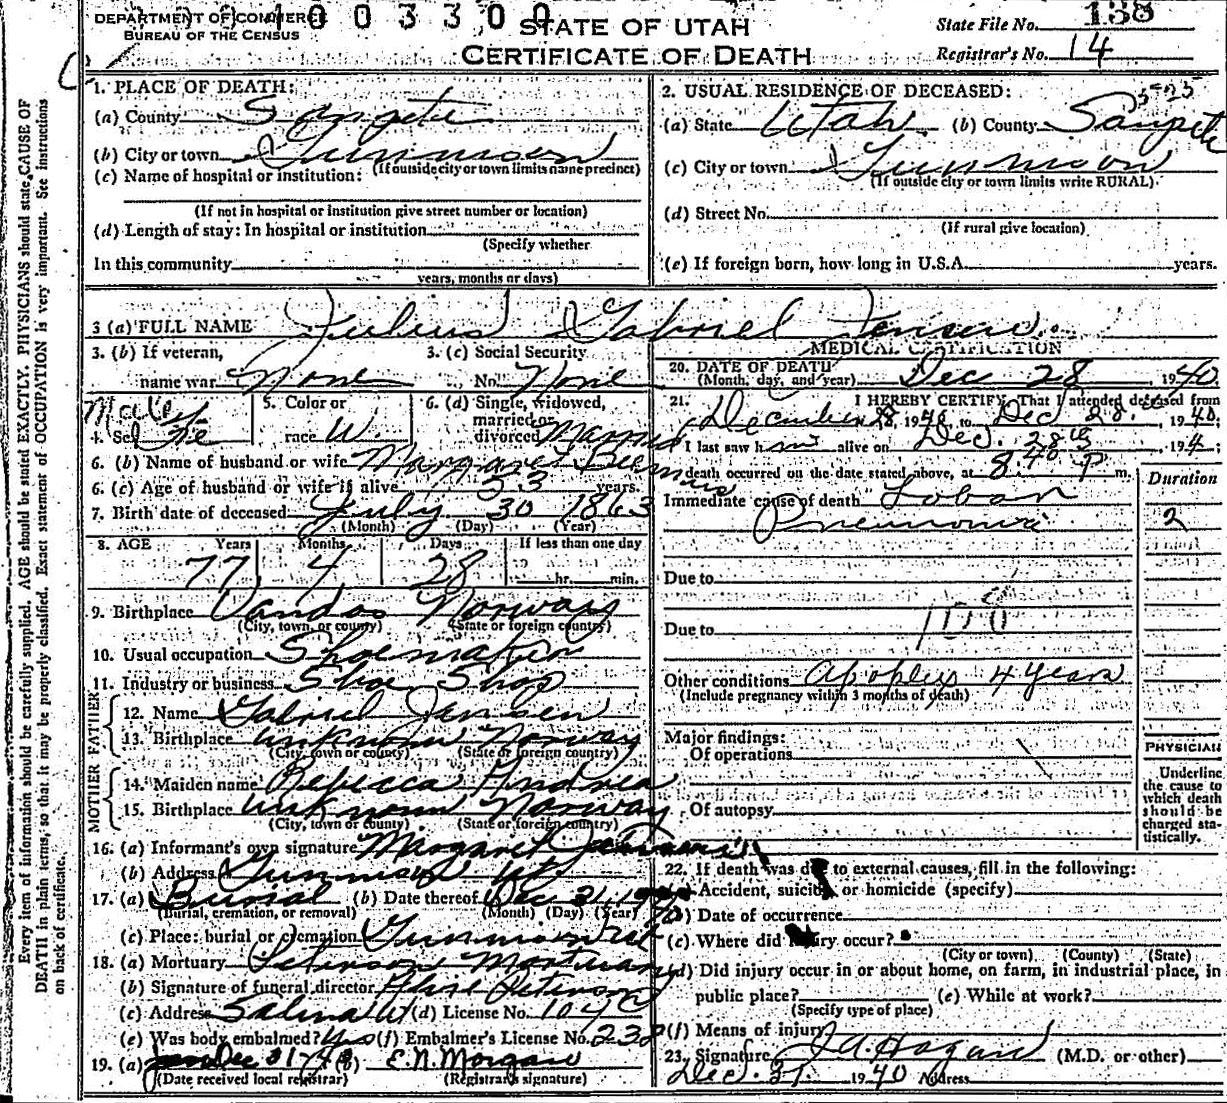 DEPARTMENT OF COMMERCE
BUREAU OF THE CENSUS
0 0 3 3 0 0
STATE OF UTAH
CERTIFICATE OF DEATH
State File No. 138
Registrar's No. 14
Every item of information should be carefully supplied. AGE should be stated EXACTLY. PHYSICIANS should state CAUSE OF
DEATH in plain terms, so that it may be properly classified. Exact statement of OCCUPATION is very important. See instructions
on back of certificate.
1. PLACE OF DEATH:
(a) County Sanpete
(b) City or town Gunnison
(If outside city or town limits name precinct)
(c) Name of hospital or institution:
(If not in hospital or institution give street number or location)
(d) Length of stay: In hospital or institution
(Specify whether
In this community
years, months or days)
2. USUAL RESIDENCE OF DECEASED:
(a) State Utah (b) County Sanpete
(c) City or town Gunnison
(If outside city or town limits write RURAL)
(d) Street No.
(If rural give location)
(e) If foreign born, how long in U.S.A. years.
3 (a) FULL NAME Julius Gabriel Jensen
3. (b) If veteran,
name war None
3. (c) Social Security
No. None
4. Sex Male
5. Color or
race W.
6. (d) Single, widowed,
married or
divorced Married
6. (b) Name of husband or wife Margaret
6. (c) Age of husband or wife if alive 53 years.
7. Birth date of deceased July 30 1863
(Month) (Day) (Year)
8. AGE Years Months Days If less than one day
77 4 28 hr. min.
9. Birthplace Norway
(City, town, or county) (State or foreign country)
10. Usual occupation Shoemaker
11. Industry or business Shoe Shop
FATHER
12. Name Gabriel Jensen
13. Birthplace unknown Norway
(City, town or county) (State or foreign country)
MOTHER
14. Maiden name Rebecca Andrea
15. Birthplace unknown Norway
(City, town or county) (State or foreign country)
16. (a) Informant's own signature Margaret Jensen
(b) Address Gunnison Ut
17. (a) Burial (b) Date thereof Dec 31, 1940
(Burial, cremation, or removal) (Month) (Day) (Year)
(c) Place: burial or cremation Gunnison Ut
18. (a) Mortuary Peterson Mortuary
(b) Signature of funeral director Peterson
(c) Address Salina Ut (d) License No. 104C
(e) Was body embalmed? Yes (f) Embalmer's License No. 232
19. (a) Dec 31-40 (b) E.N. Morgan
(Date received local registrar) (Registrar's signature)
MEDICAL CERTIFICATION
20. DATE OF DEATH
(Month, day, and year) Dec 28 1940
21. I HEREBY CERTIFY, That I attended deceased from
December 28, 1940, to Dec 28, 1940.
I last saw him alive on Dec. 28th 194
death occurred on the date stated above, at 8:40 P m.
Duration
Immediate cause of death Lobar
Pneumonia 2
Due to
Due to
108
Other conditions Apoplexy 4 years
(Include pregnancy within 3 months of death)
Major findings:
Of operations
Of autopsy
PHYSICIAN
Underline
the cause to
which death
should be
charged sta-
tistically.
22. If death was due to external causes, fill in the following:
Accident, suicide, or homicide (specify)
(b) Date of occurrence
(c) Where did injury occur?
(City or town) (County) (State)
(d) Did injury occur in or about home, on farm, in industrial place, in
public place? (e) While at work?
(Specify type of place)
(f) Means of injury
23. Signature J.A. Hagan (M.D. or other)
Dec. 31 1940 Address